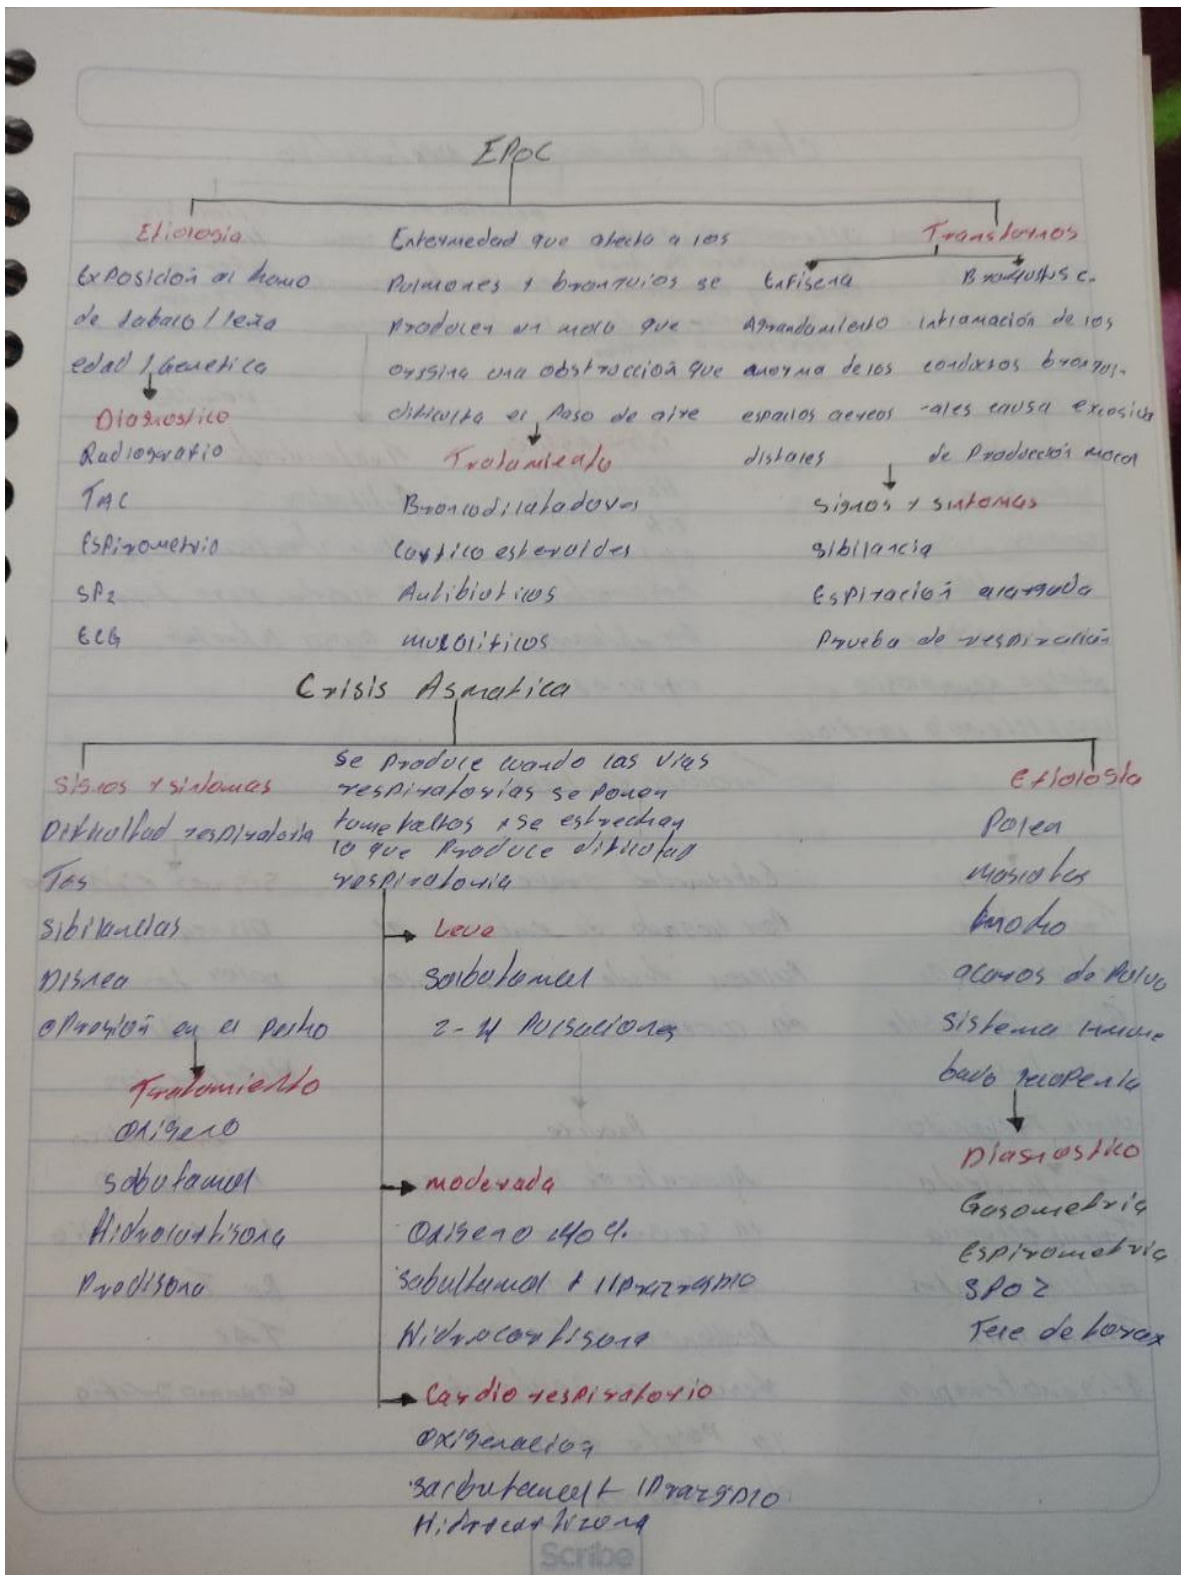 EPOC
Etiologia
Exposición al humo
de tabaco / leña
edad / Genetica
Diagnostico
Radiografia
TAC
Espirometria
SP2
ECG
Enfermedad que afecta a los
Pulmones y bronquios se
Producen un moco que
origina una obstrucción que
dificulta el Paso de aire
Tratamiento
Broncodilatadores
Cortico esteroides
Antibioticos
mucoliticos
Transtornos
Enfisema
Agrandamiento
anorma de los
espacios aereos
distales
Bronquitis c.
inflamación de los
conductos bronqui-
ales causa excesiva
de Producción mocor
signos y sintomas
sibilancia
Espiración alargada
Prueba de respiración
Crisis Asmatica
Signos y sintomas
Dificultad respiratoria
Tos
sibilancias
Disnea
opresión en el pecho
Tratamiento
oxigeno
salbutamol
Hidrocortisona
Predisona
se produce cuando las vias
respiratorias se ponen
y se estrechan
lo que Produce dificultad
respiratoria
Leve
Salbutamol
2-4 Pulsaciones
moderada
Oxigeno
Salbutamol +
Hidrocortisona
Cardio respiratorio
oxigenacion
Hidrocortizona
Etiologia
Polen
mascotas
humo
acaros de Polvo
sistema inmune
Diagnostico
Gasometria
Espirometria
SPO2
Tele de torax
Scribe